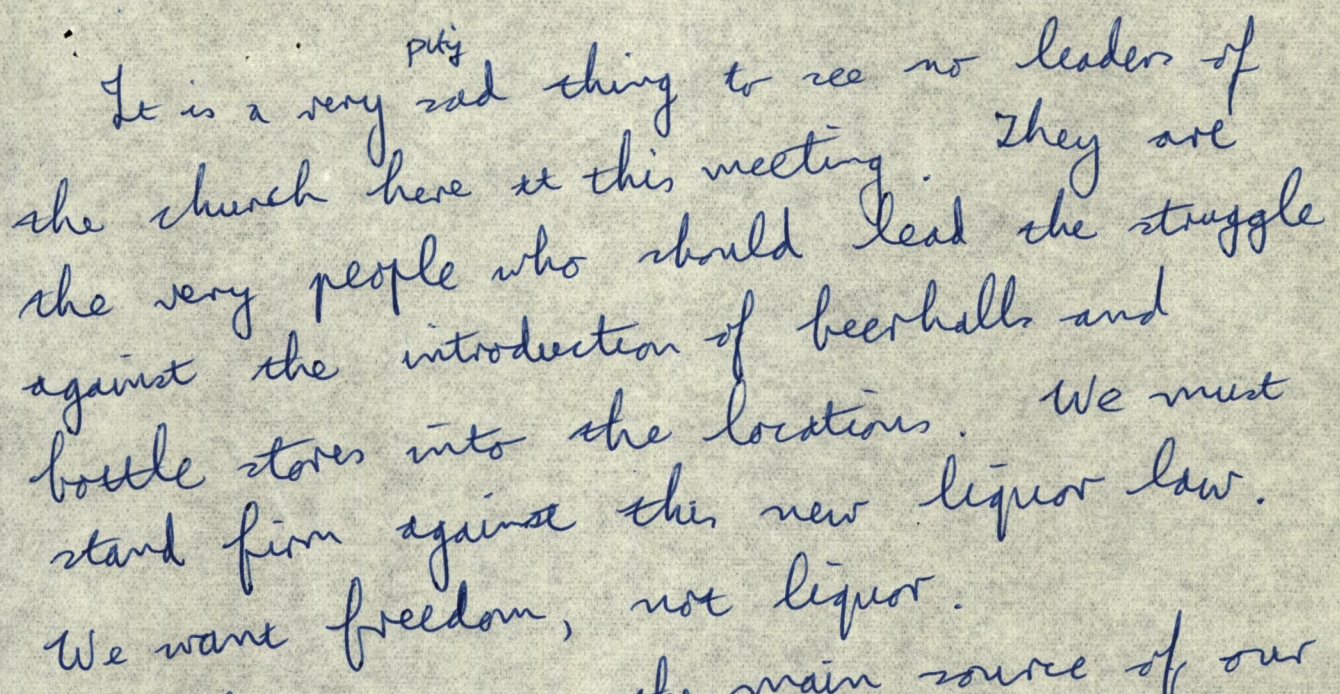 pity
It is a very sad thing to see no leaders of
the church here at this meeting. They are
the very people who should lead the struggle
against the introduction of beerhalls and
bottle stores into the locations. We must
stand firm against this new liquor law.
We want freedom, not liquor.
the main source of our